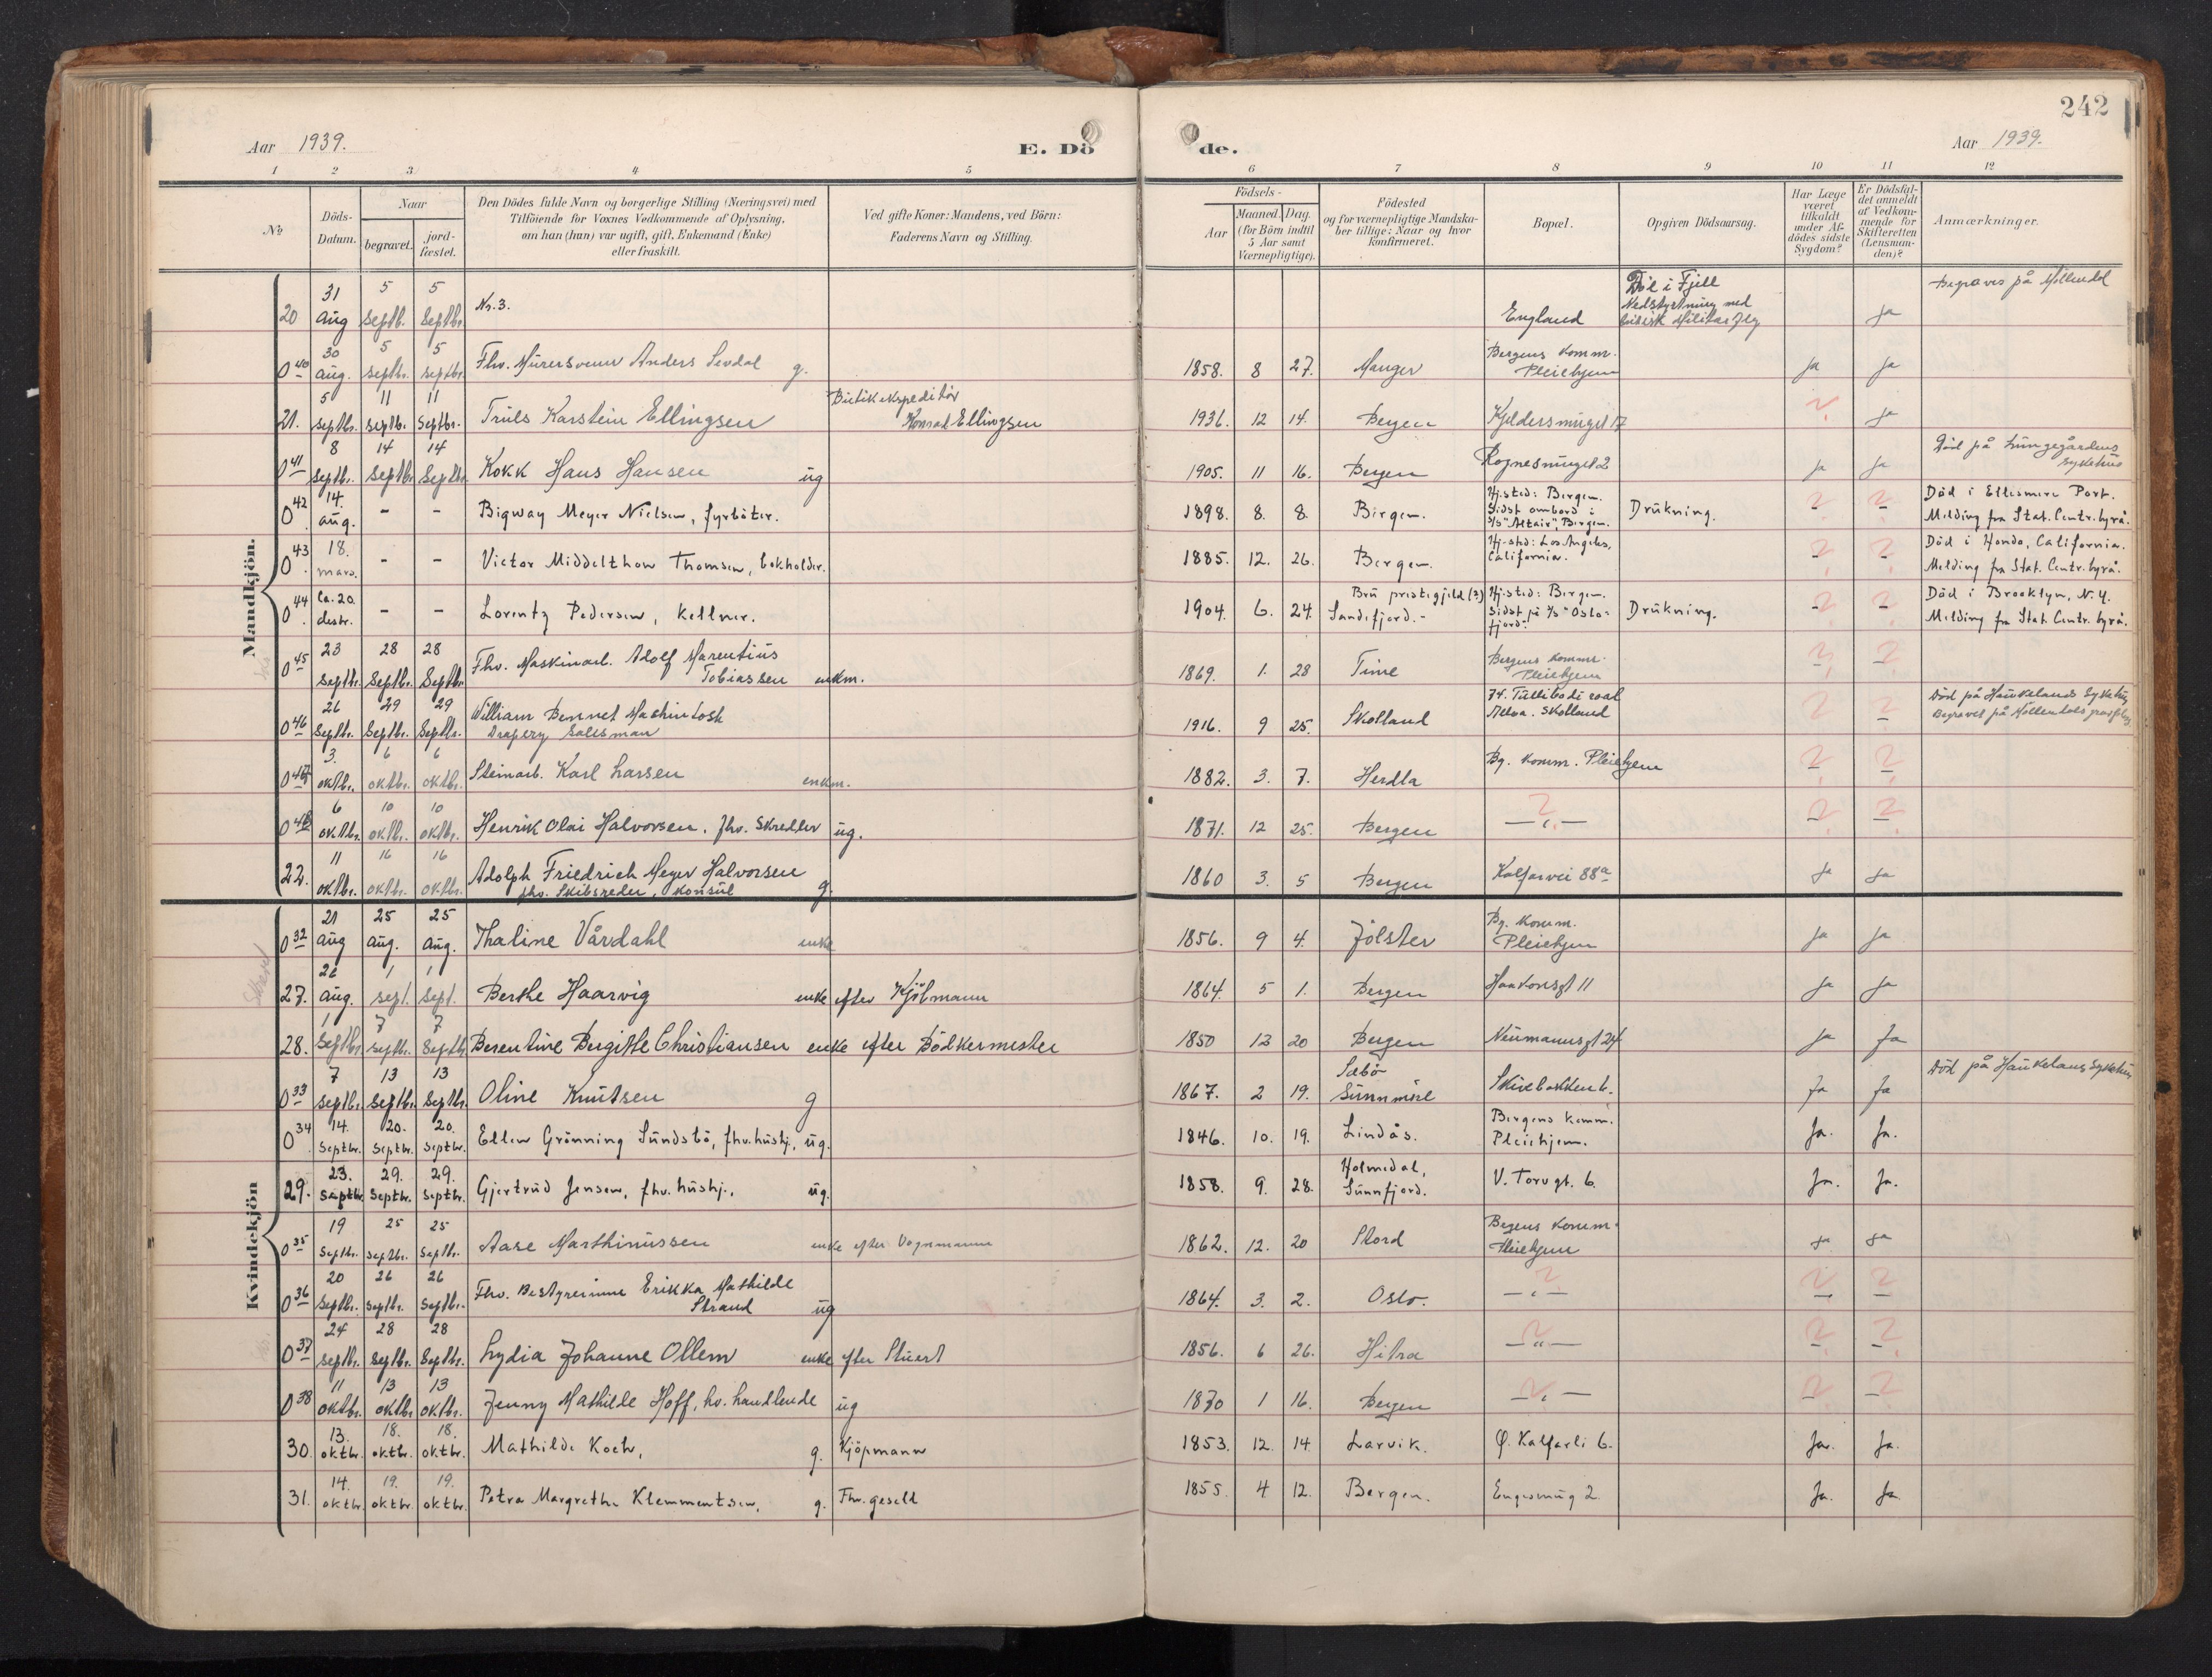 242
Aar 1939.
E. Dö de.
Aar 1939.
1 2 3 4 5 6 7 8 9 10 11 12
No
Döds-Datum.
Naar
begravet.
jord-fæstet.
Den Dödes fulde Navn og borgerlige Stilling (Næringsvei) med
Tilföiende for Voxnes Vedkommende af Oplysning,
om han (hun) var ugift, gift, Enkemand (Enke)
eller fraskilt.
Ved gifte Koner: Mandens, ved Börn:
Faderens Navn og Stilling.
Födsels-
Aar
Maaned. Dag.
(for Börn indtil
5 Aar samt
Værnepligtige).
Födested
og for værnepligtige Mandska-
ber tillige: Naar og hvor
konfirmeret.
Bopæl.
Opgiven Dödsaarsag.
Har Læge
været
tilkaldt
under Af-
dödes sidste
Sygdom?
Er Dödsfal-
det anmeldt
af Vedkom-
mende for
Skifteretten
(Lensman-
den)?
Anmærkninger.
Mandkjön.
20 31 aug 5 septb. 5 septbr. Nr. 3. England Död i Fjell Nedstyrtning med militærfly ja Begraves på Möllendal
0 40 30 aug. 5 septbr. 5 septbr. Fhv. Murersvenn Anders Sevdal g. 1858. 8 27. Manger Bergens komm. Pleiehjem ja ja
21. 5 septbr. 11 septbr. 11 septbr. Truls Karstein Ellingsen Butikekspeditör Konrad Ellingsen 1936. 12 14. Bergen Kjeldersmuget 17 ? ja
0 41 8 septbr. 14 septbr. 14 septbr. Kokk Hans Hansen ug 1905. 11 16. Bergen Rognesmuget 2 ja ja Död på Lungegårdens sykehus
0 42 14. aug. - - Bigway Meyer Nielsen, fyrböter. 1898. 8. 8. Bergen. Hj.sted: Bergen. Sidst ombord i S/S "Altair", Bergen. Drukning. ? - ? - Död i Ellesmere Port. Melding fra Stat. Centr. byrå.
0 43 18. mars. - - Victor Middelthon Thomsen, bokholder. 1885. 12. 26. Bergen. Hj.sted: Los Angeles, California. ? - ? - Död i Hondo, California. Melding fra Stat. Centr. byrå.
0 44 Ca. 20. desbr. - - Lorentz Pedersen, kellner. 1904 6. 24. Bru prestegjeld (?) Sandefjord. - Hj.sted: Bergen. Sidst på S/S "Oslofjord". Drukning. ? - ? - Död i Brooklyn, N.Y. Melding fra Stat. Centr. byrå.
0 45 23 septbr. 28 septbr. 28 septbr. Fhv. Maskinarb. Adolf Marentius Tobiassen enkm. 1869. 1. 28 Time Bergens komm. Pleiehjem ? - ? -
0 46 26 septbr. 29 septbr. 29 septbr. William Bennet Mackintosh Drapery Salesman 1916. 9 25. Skotland 74. Tullibodi road Alva. Skotland ? ? - Död på Haukelands Sykehus Begravet på Möllendals gravplass
0 47 3. oktbr. 6 oktbr. 6 oktbr. Steinarb. Karl Larsen enkm. 1882. 3. 7. Herdla Bg. komm. Pleiehjem ? - ? -
0 48 6 oktbr. 10 oktbr. 10 oktbr. Henrik Olai Halvorsen, fhv. Skredder ug. 1871. 12 25. Bergen ? — " — ? - ? -
22. 11 oktbr. 16 oktbr. 16 oktbr. Adolph Friedrich Meyer Halvorsen fhv. Skibsreder, konsul g. 1860 3. 5 Bergen Kalfarvei 88a ja ja
Kvindekjön
0 32 21 aug 25 aug. 25 aug. Thaline Vårdahl enke 1856. 9 4. Jölster Bg. komm. Pleiehjem ja ja
27. 26 aug. 1 sept. 1 sept. Berthe Haarvig enke efter Kjöbmann 1864. 5 1. Bergen Haakonsgt 11 ja ja
28. 1 septbr 7 septbr. 7 septbr. Berentine Bergitte Christiansen enke efter Bödkermester 1850 12 20 Bergen Neumannsgt 24 ja ja
0 33 7 septbr. 13 septbr. 13 septbr. Oline Knutsen g 1867. 2 19. Sæbö Sunnmöre Skivebakken 6. ja ja Död på Haukeland Sykehus
0 34 14. septbr. 20. septbr. 20. septbr. Ellen Grönning Sundsbö, fhv. hushj., ug. 1846. 10. 19. Lindås. Bergens komm. Pleiehjem. Ja. Ja.
29. 23. septbr 29. septbr. 29. septbr. Gjertrud Jensen, fhv. hushj., ug. 1858. 9. 28. Holmedal, Sunnfjord. V. Torvgt. 6. Ja. Ja.
0 35 19 septbr. 25 septbr. 25 septbr. Aase Marthinussen enke efter Vognmann 1862. 12. 20 Stord Bergens komm. Pleiehjem ja ja
0 36 20 septbr. 26 septbr. 26 septbr. Fhv. Bestyrerinne Erikka Mathilde Strand ug 1864. 3. 2. Oslo. ? — " — ? - ? -
0 37 24 septbr. 28 septbr. 28 septbr. Lydia Johanne Ollem enke efter Stuert 1856. 6 26. Hitra ? — " — ? - ? -
0 38 11 oktbr. 13 oktbr. 13 oktbr. Jenny Mathilde Hoff, hv. handlende ug 1870 1 16. Bergen ? — " — ? - ? -
30. 13. oktbr. 18. oktbr. 18. oktbr. Mathilde Koch, g. Kjöpmann 1853. 12. 14. Larvik. Ö. Kalfarli 6. Ja. Ja.
31. 14. oktbr. 19. oktbr. 19. oktbr. Petra Margrethe Klemmentsen, g. Fhv. gesell 1855. 4 12. Bergen. Engesmug 2. Ja. Ja.